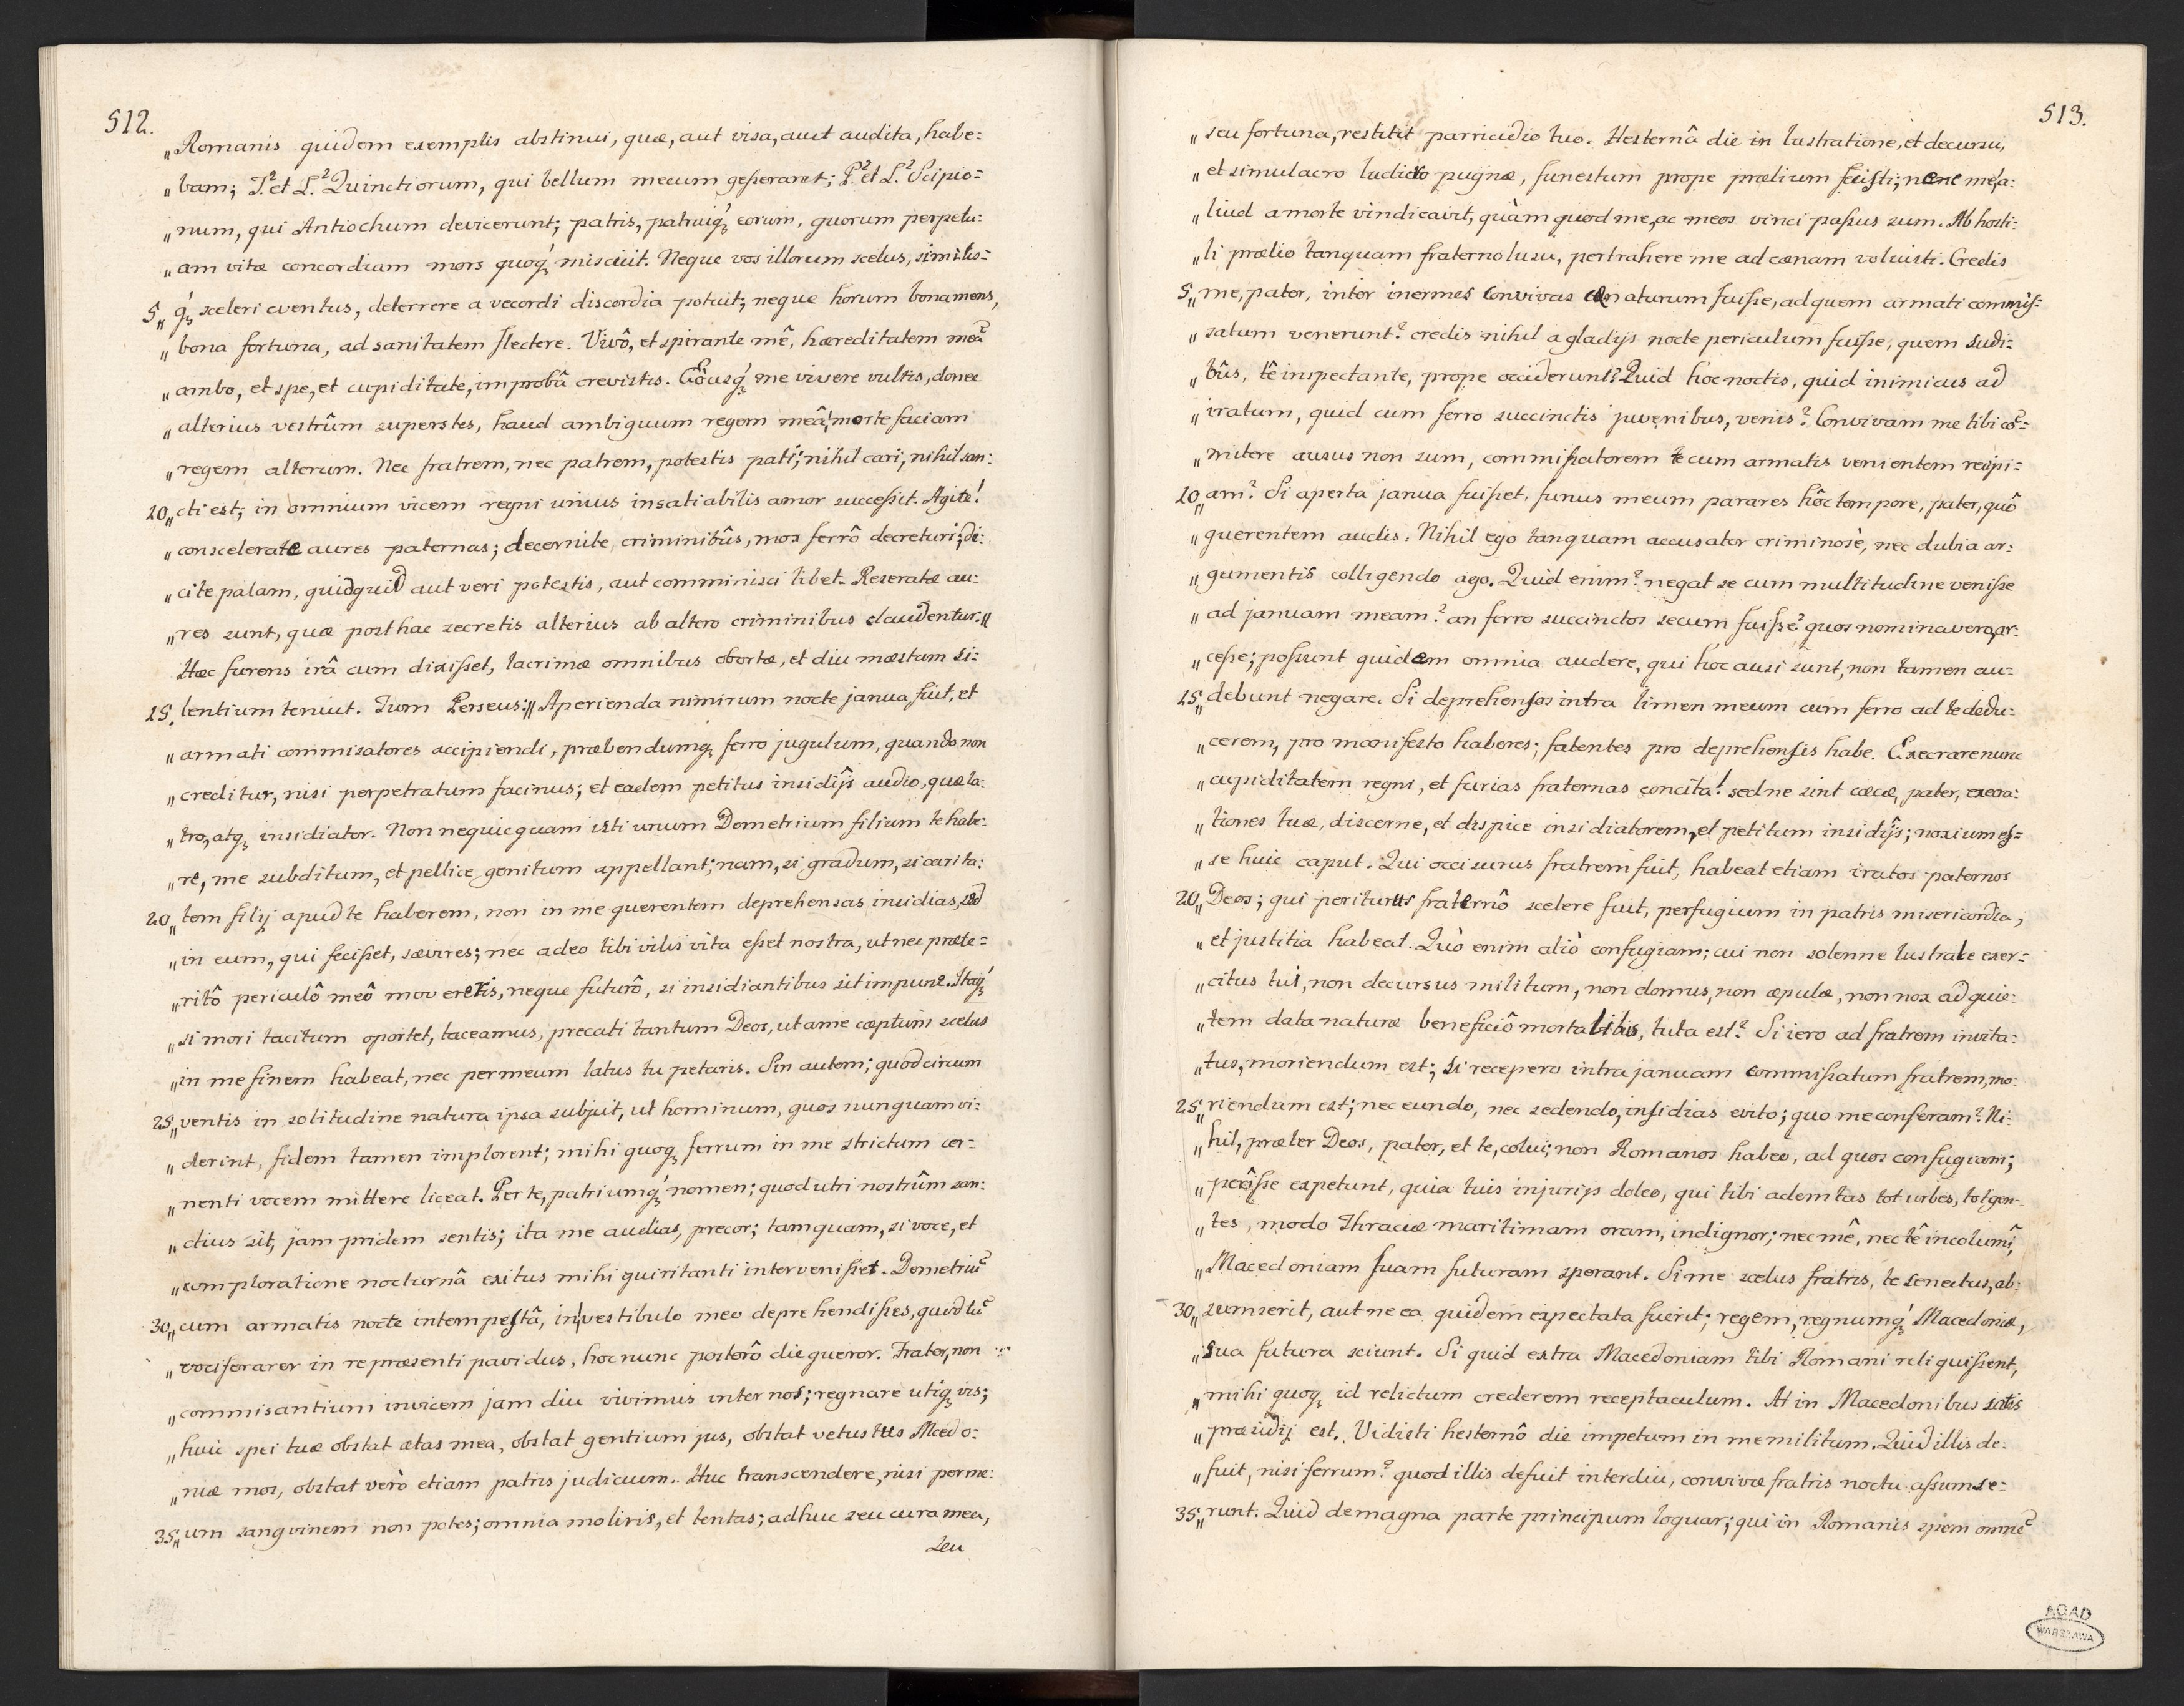 512.
„Romanis quidem exemplis abstinui, quæ, aut visa, aut audita, habe=
„bam; T. et L. Quinctiorum, qui bellum mecum gesserant; P. et L. Scipio=
„num, qui Antiochum devicerunt; patris, patruiq́; eorum, quorum perpetu=
„am vitæ concordiam mors quoq́; miscuit. Neque vos illorum scelus, similis=
5„q́; sceleri eventus, deterrere a vecordi discordia potuit; neque horum bona mens,
„bona fortuna, ad sanitatem flectere. Vivô, et spirante mê, hæreditatem meã
„ambo, et spe, et cupiditate, improbâ crevistis. Eòusq́; me vivere vultis, donec
„alterius vestrûm superstes, haud ambiguum regem meâ morte faciam
„regem alterum. Nec fratrem, nec patrem, potestis pati; nihil cari, nihil san=
10„cti est; in omnium vicem regni unius insatiabilis amor successit. Agite!
„conscelerate aures paternas; decernite criminibûs, mox ferrô decreturi; di=
„cite palam, quidquid aut veri potestis, aut comminisci libet. Reseratæ au=
„res sunt, quæ posthac secretis alterius ab altero criminibus claudentur.„
Hæc furens irâ cum dixisset, lacrimæ omnibus obortæ, et diu mæstum si=
15. lentium tenuit. Tum Perseus:„ Aperienda nimirum nocte janua fuit, et
„armati commisatores accipiendi, præbendumq; ferro jugulum, quando non
„creditur, nisi perpetratum facinus; et eadem petitus insidijs audio, quæ la=
„tro, atq; insidiator. Non nequicquam isti unum Demetrium filium te habe=
„re, me subditum, et pellice genitum appellant; nam, si gradum, si carita=
20„tem filij apud te haberem, non in me querentem deprehensas insidias, sed
„in eum, qui fecisset, sævires; nec adeo tibi vilis vita esset nostra, ut nec præte=
„ritô periculô meô movereris, neque futurô, si insidiantibus sit impune. Itaq́;
„si mori tacitum oportet, taceamus, precati tantum Deos, ut a me cœptum scelus
„in me finem habeat, nec per meum latus tu petaris. Sin autem; quod circum
25„ventis in solitudine natura ipsa subjicit, ut hominum, quos nunquam vi=
„derint, fidem tamen implorent; mihi quoq; ferrum in me strictum cer=
„nenti vocem mittere liceat. Per te, patriumq́; nomen; quod utri nostrûm san=
„ctius sit, jam pridem sentis; ita me audias, precor; tamquam, si voce, et
„comploratione nocturnâ excitus mihi quiritanti intervenisses. Demetriũ
30„cum armatis nocte intempestâ, in vestibulo meo deprehendisses, quod tũ
„vociferarer in re præsenti pavidus, hoc nunc posterô die queror. Frater, non
„commisantium invicem jam diu vivimus inter nos; regnare utiq; vis;
„huic spei tuæ obstat ætas mea, obstat gentium jus, obstat vetustus Mcedo=
„niæ mos, obstat verò etiam patris judicium. Huc transcendere, nisi per me=
35„um sangvinem non potes; omnia moliris, et tentas; adhuc seu cura mea,
Seu
513.
„seu fortuna, restitit parricidio tuo. Hesternâ die in lustratione, et decursu,
„et simulacro ludicro pugnæ, funestum prope prælium fecisti; nec me a=
„liud a morte vindicavit, quàm quod me, ac meos vinci passus sum. Ab hosti=
„li prælio tanquam fraterno lusu, pertrahere me ad cœnam voluisti. Credis
5„me, pater, inter inermes convivas cœnaturum fuisse, ad quem armati commis=
„satum venerunt? credis nihil a gladijs nocte periculum fuisse, quem sudi=
„bûs, tê inspectante, prope occiderunt? Quid hoc noctis, quid inimicus ad
„iratum, quid cum ferro succinctis juvenibus, venis? Convivam me tibi cõ=
„mitere ausus non sum, commissatorem te cum armatis venientem recipi=
10„am? Si aperta janua fuisset, funus meum parares hôc tempore, pater, quô
„querentem audis. Nihil ego tanquam accusator criminosè, nec dubia ar=
„gumentis colligendo ago. Quid enim? negat se cum multitudine venisse
„ad januam meam? an ferro succinctos secum fuisse? quos nominavero, ar=
„cesse; possunt quidem omnia audere, qui hoc ausi sunt, non tamen au=
15„debunt negare. Si deprehensos intra limen meum cum ferro ad te dedu=
„cerem, pro manifesto haberes; fatentes pro deprehensis habe. Execrare nunc
„cupiditatem regni, et furias fraternas concita! sed ne sint cæcæ, pater, execra=
„tiones tuæ, discerne, et dispice insidiatorem, et petitum insidijs; noxium es=
„se huic caput. Qui occisurus fratrem fuit, habeat etiam iratos paternos
20„Deos; qui periturus fraternô scelere fuit, perfugium in patris misericordia,
„et justitia habeat. Quò enim aliò confugiam; cui non solenne lustrale exer=
„citus tui, non decursus militum, non domus, non epulæ, non nox ad quie=
„tem data naturæ beneficiô mortalibus, tuta est? Si iero ad fratrem invita=
„tus, moriendum est; si recepero intra januam commissatum fratrem, mo=
25„riendum est; nec eundo, nec sedendo, insidias evito; quo me conferam? Ni=
„hil, præter Deos, pater, et te, colui; non Romanos habeo, ad quos confugiam;
„perîsse expetunt, quia tuis injurijs doleo, qui tibi ademtas tot urbes, tot gen=
„tes, modo Thraciæ maritimam oram, indignor; nec mê, nec tê incolumĩ,
„Macedoniam suam futuram sperant. Si me scelus fratris, te senectus, ab=
30„sumserit, aut ne ea quidem expectata fuerit; regem, regnumq́; Macedoniæ,
„sua futura sciunt. Si quid extra Macedoniam tibi Romani reliquissent,
„mihi quoq; id relictum crederem receptaculum. At in Macedonibus satis
„præsidij est. Vidisti hesternô die impetum in me militum. Quid illis de=
„fuit, nisi ferrum? quod illis defuit interdiu, convivæ fratris noctu assumse=
35„runt. Quid de magna parte principum loquar; qui in Romanis spem omnẽ
AGAD
WARSZAWA